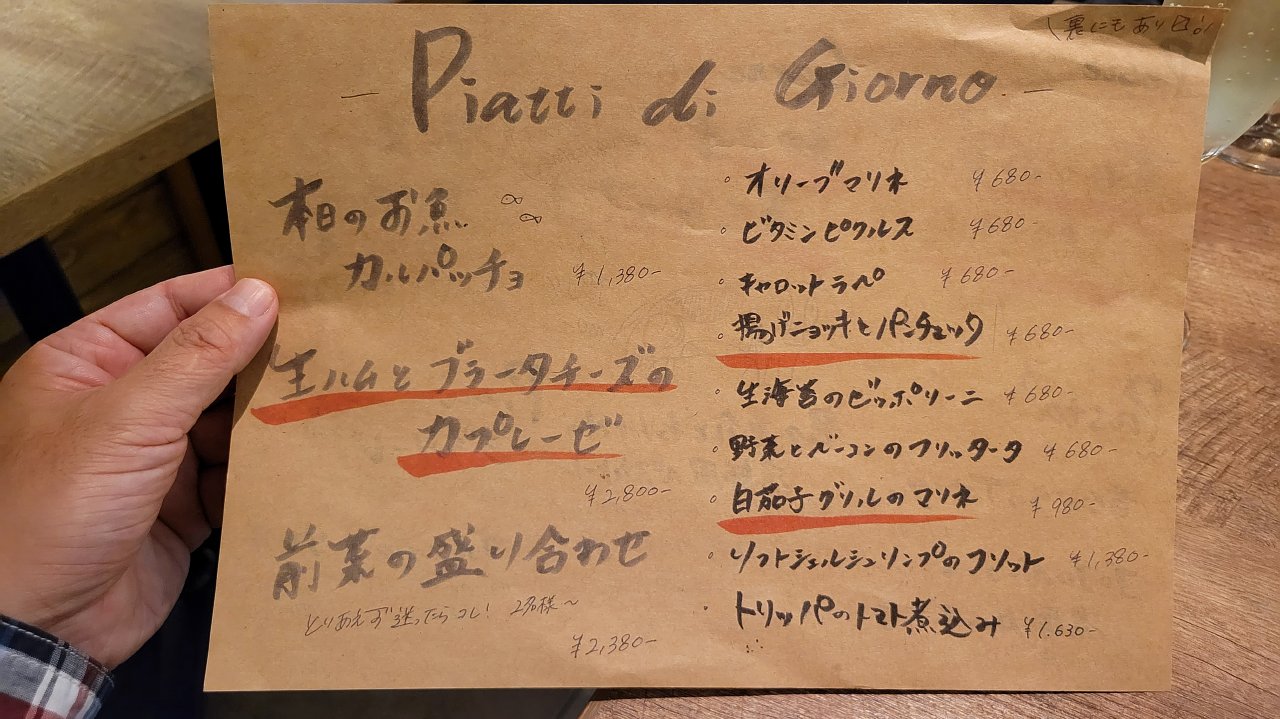 (裏にもあり〼!
- Piatti di Giorno -
本日のお魚
カルパッチョ ¥1,380-
生ハムとブラータチーズの
カプレーゼ
¥2,800-
前菜の盛り合わせ
とりあえず迷ったらコレ! 2名様〜
¥2,380-
。オリーブマリネ ¥680-
。ビタミンピクルス ¥680-
。キャロットラペ ¥680-
。揚げニョッキとパンチェッタ ¥680-
。生海苔のゼッポリーニ ¥680-
。野菜とベーコンのフリッタータ ¥680-
。白茄子グリルのマリネ ¥980-
。ソフトシェルシュリンプのフリット ¥1,380-
。トリッパのトマト煮込み ¥1.630-